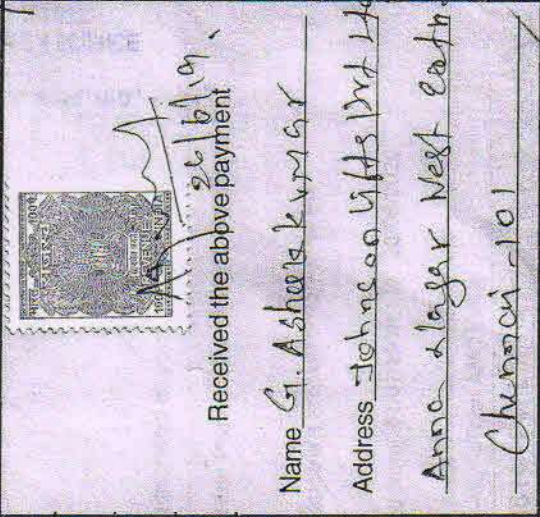 भारत REVENUE INDIA
26/6/19.
Received the above payment
Name G. Ashok Kumar
Address Johnson Lifts Pvt Ltd
Anna Nagar West Extn.
Chennai-101